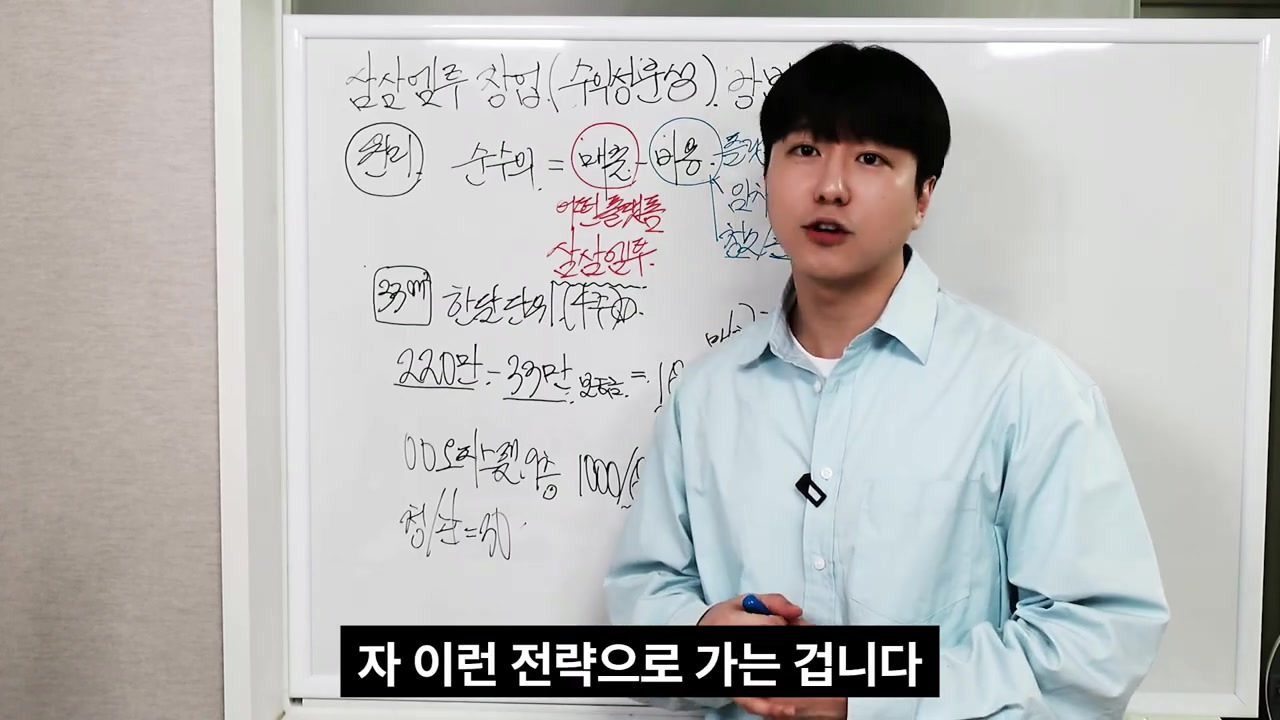 삼삼엠투 창업 (수익성분석)
원리 순수익 = 매출 - 비용.
어떤플랫폼
삼삼엠투.
33m² 한달 단위 (4주)
220만 - 33만 보증금 =
OO오피스텔 9층 1000/
청/관 = 30
자 이런 전략으로 가는 겁니다